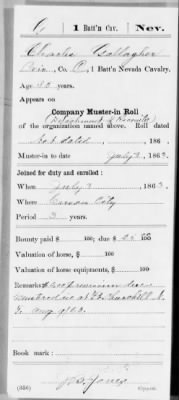 G 1 Batt'n Cav. Nev.
Charles Gallagher
Priv., Co. C, 1 Batt'n Nevada Cavalry.
Age 40 years.
Appears on
Company Muster-in Roll
(Detachment of Recruits)
of the organization named above. Roll dated
Not dated, 186 .
Muster-in to date July 3, 1863.
Joined for duty and enrolled:
When July 3, 1863.
Where Carson City
Period 3 years.
Bounty paid $ 100; due $ 25 100
Valuation of horse, $ 100
Valuation of horse equipments, $ 100
Remarks: $2.00 premium due
Mustered in at Ft Churchill N.
T. Aug 9/63.
Book mark:
Jones
(356) Copyist.